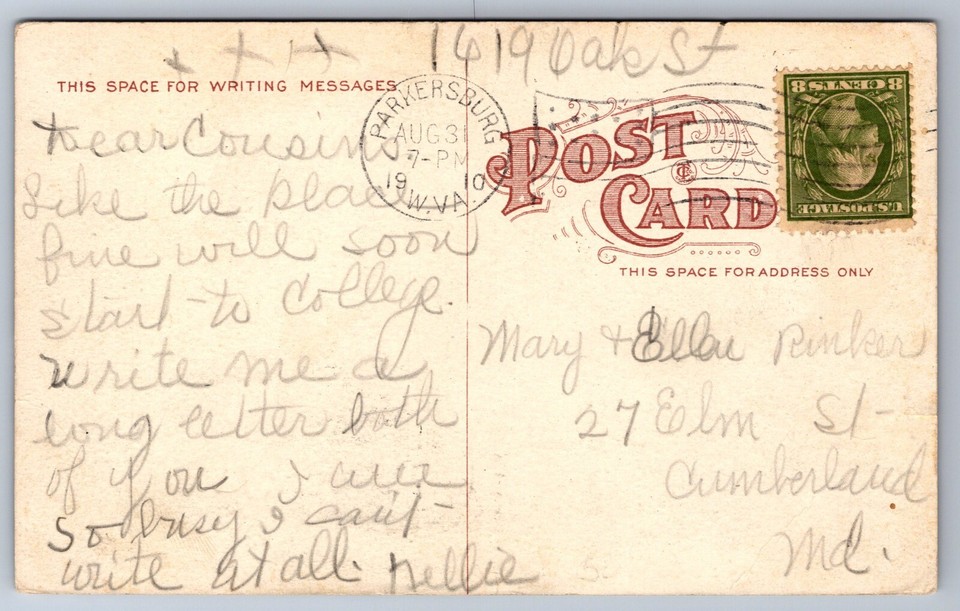 x x x x 1619 Oak St
THIS SPACE FOR WRITING MESSAGES
Dear Cousins
Like the place
fine will soon
start to College.
write me a
long letter both
of you I am
so busy I can't
write at all. Nellie
PARKERSBURG
AUG 31
7-PM
1910
W. VA.
POST CARD
8 CENTS 8
U.S. POSTAGE
THIS SPACE FOR ADDRESS ONLY
Mary & Ella Rinker
27 Elm St
Cumberland
Md.